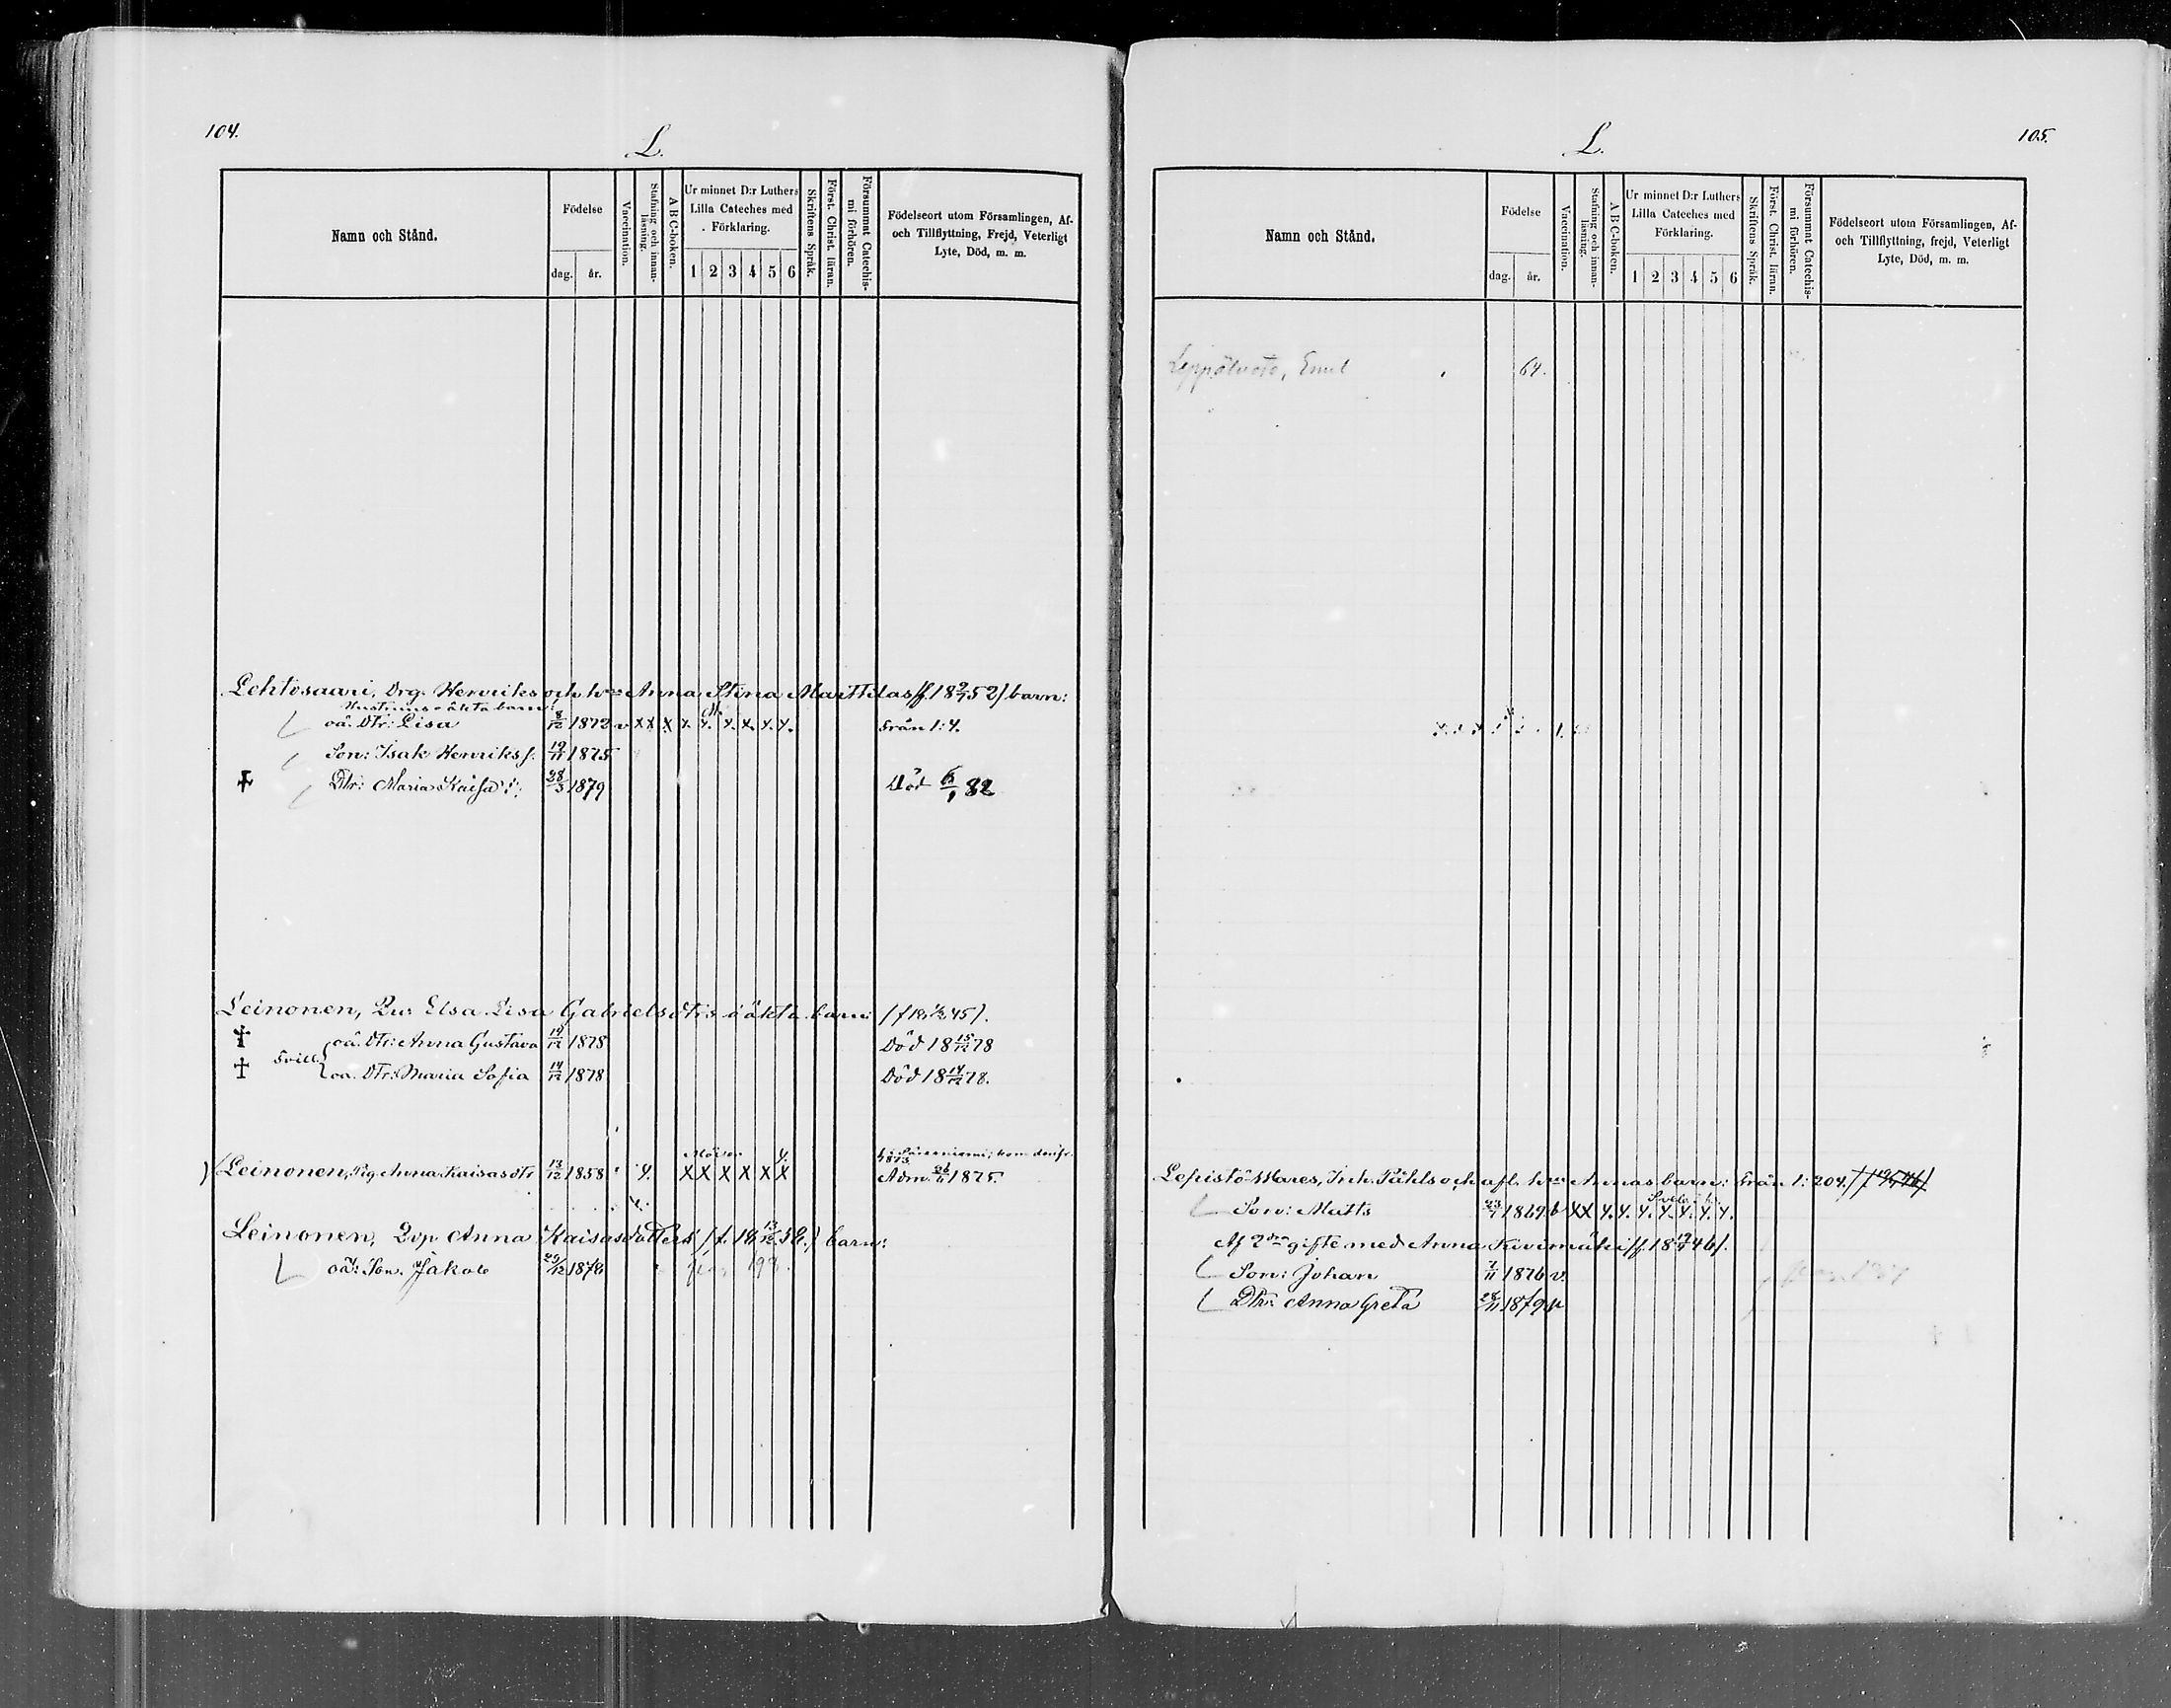 104.
L.
Namn och Stånd.
Födelse
dag.
år.
Vaccination.
Stafning och innan-
läsning.
A B C-boken.
Ur minnet D:r Luthers
Lilla Cateches med
Förklaring.
1 2 3 4 5 6
Skriftens Språk.
Först. Christ. läran.
Försummat Catechis-
mi förhören.
Födelseort utom Församlingen, Af-
och Tillflyttning, Frejd, Veterligt
Lyte, Död, m. m.
Lehtosaari, Drg. Henriks och h:ns Anna Stina Marttilas (f. 18 9/7 52) barn:
Hustruns oäkta barn:
oä. Dtr: Lisa 8/12 1872 v x x x x. x. x. x. x. x. Från 1:4.
Son: Isak Henriks s. 19/11 1875
Dtr: Maria Kaisa 28/3 1879 Död 6/1 82
Leinonen, Elsa Lisa Gabrielsdtrs oäkta barn:
oä. Dtr: Anna Gustava 14/12 1878 Död 18 15/12 78
oä. Dtr: Maria Sofia 14/12 1878 Död 18 14/12 78.
Leinonen, Pig. Anna Kaisasdtr 13/12 1858 x. X X X X X X Adm. 1875.
Leinonen, Anna Kaisasdotters (f. 18 13/12 58.) barn:
oä: Son. Jakob 29/12 1878
105.
L.
Namn och Stånd.
Födelse
dag.
år.
Vaccination.
Stafning och innan-
läsning.
A B C-boken.
Ur minnet D:r Luthers
Lilla Cateches med
Förklaring.
1 2 3 4 5 6
Skriftens Språk.
Först. Christ. läran.
Försummat Catechis-
mi förhören.
Födelseort utom Församlingen, Af-
och Tillflyttning, frejd, Veterligt
Lyte, Död, m. m.
Emil 64.
Lepistö-Mares, Inh. Påhls och afl. h:ns Annas barn: Från 1:204.
Son: Matts 1869 x x x. x. x. x. x. x. x.
Af 2dra gifte med Anna Kivimäki
Son: Johan 7/11 1876 v.
Dtr: Anna Greta 28/11 1879 v